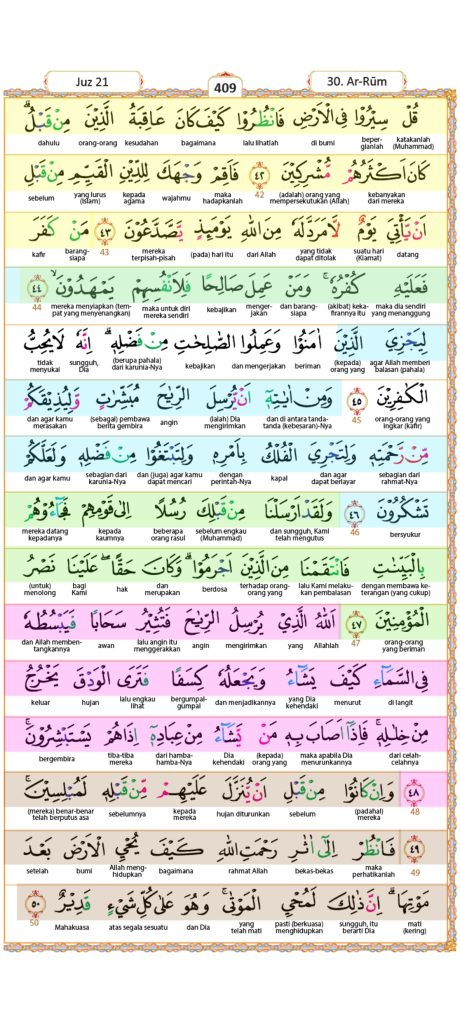 Juz 21
409
30. Ar-Rūm
قُلْ سِيْرُوْا فِى الْاَرْضِ فَانْظُرُوْا كَيْفَ كَانَ عَاقِبَةُ الَّذِيْنَ مِنْ قَبْلُۗ
katakanlah (Muhammad) beper-gianlah di bumi lalu lihatlah bagaimana kesudahan orang-orang dahulu
كَانَ اَكْثَرُهُمْ مُّشْرِكِيْنَ ٤٢ فَاَقِمْ وَجْهَكَ لِلدِّيْنِ الْقَيِّمِ مِنْ قَبْلِ
kebanyakan dari mereka (adalah) orang yang mempersekutukan (Allah) 42 maka hadapkanlah wajahmu kepada agama yang lurus (Islam) sebelum
اَنْ يَّأْتِيَ يَوْمٌ لَّا مَرَدَّ لَهٗ مِنَ اللّٰهِ يَوْمَىِٕذٍ يَّصَّدَّعُوْنَ ٤٣ مَنْ كَفَرَ
datang suatu hari (Kiamat) yang tidak dapat ditolak dari Allah (pada) hari itu mereka terpisah-pisah 43 barang-siapa kafir
فَعَلَيْهِ كُفْرُهٗۚ وَمَنْ عَمِلَ صَالِحًا فَلِاَنْفُسِهِمْ يَمْهَدُوْنَۙ ٤٤
maka dia sendiri yang menanggung (akibat) keka-firannya itu dan barang-siapa menger-jakan kebajikan maka untuk diri mereka sendiri mereka menyiapkan (tem-pat yang menyenangkan) 44
لِيَجْزِيَ الَّذِيْنَ اٰمَنُوْا وَعَمِلُوا الصّٰلِحٰتِ مِنْ فَضْلِهٖۗ اِنَّهٗ لَا يُحِبُّ
agar Allah memberi balasan (pahala) (kepada) orang yang beriman dan mengerjakan kebajikan (berupa pahala) dari karunia-Nya sungguh, Dia tidak menyukai
الْكٰفِرِيْنَ ٤٥ وَمِنْ اٰيٰتِهٖٓ اَنْ يُّرْسِلَ الرِّيٰحَ مُبَشِّرٰتٍ وَّلِيُذِيْقَكُمْ
orang-orang yang ingkar (kafir) 45 dan di antara tanda-tanda (kebesaran)-Nya (ialah) Dia mengirimkan angin (sebagai) pembawa berita gembira dan agar kamu merasakan
مِّنْ رَّحْمَتِهٖ وَلِتَجْرِيَ الْفُلْكُ بِاَمْرِهٖ وَلِتَبْتَغُوْا مِنْ فَضْلِهٖ وَلَعَلَّكُمْ
sebagian dari rahmat-Nya dan agar dapat berlayar kapal dengan perintah-Nya dan (juga) agar kamu dapat mencari sebagian dari karunia-Nya dan agar kamu
تَشْكُرُوْنَ ٤٦ وَلَقَدْ اَرْسَلْنَا مِنْ قَبْلِكَ رُسُلًا اِلٰى قَوْمِهِمْ فَجَاۤءُوْهُمْ
bersyukur 46 dan sungguh, Kami telah mengutus sebelum engkau (Muhammad) beberapa orang rasul kepada kaumnya mereka datang kepadanya
بِالْبَيِّنٰتِ فَانْتَقَمْنَا مِنَ الَّذِيْنَ اَجْرَمُوْاۗ وَكَانَ حَقًّاۖ عَلَيْنَا نَصْرُ
dengan membawa ke-terangan (yang cukup) lalu Kami melaku-kan pembalasan terhadap orang-orang yang berdosa dan merupakan hak bagi Kami (untuk) menolong
الْمُؤْمِنِيْنَ ٤٧ اَللّٰهُ الَّذِيْ يُرْسِلُ الرِّيٰحَ فَتُثِيْرُ سَحَابًا فَيَبْسُطُهٗ
orang-orang yang beriman 47 Allahlah yang mengirimkan angin lalu angin itu menggerakkan awan dan Allah memben-tangkannya
فِى السَّمَاۤءِ كَيْفَ يَشَاۤءُ وَيَجْعَلُهٗ كِسَفًا فَتَرَى الْوَدْقَ يَخْرُجُ
di langit menurut yang Dia kehendaki dan menjadikannya bergumpal-gumpal lalu engkau lihat hujan keluar
مِنْ خِلٰلِهٖۚ فَاِذَآ اَصَابَ بِهٖ مَنْ يَّشَاۤءُ مِنْ عِبَادِهٖٓ اِذَا هُمْ يَسْتَبْشِرُوْنَۚ
dari celah-celahnya maka apabila Dia menurunkannya (kepada) orang yang Dia kehendaki dari hamba-hamba-Nya tiba-tiba mereka bergembira
٤٨ وَاِنْ كَانُوْا مِنْ قَبْلِ اَنْ يُّنَزَّلَ عَلَيْهِمْ مِّنْ قَبْلِهٖ لَمُبْلِسِيْنَۚ
48 (padahal) mereka sebelum hujan diturunkan kepada mereka sebelumnya (mereka) benar-benar telah berputus asa
٤٩ فَانْظُرْ اِلٰٓى اٰثٰرِ رَحْمَتِ اللّٰهِ كَيْفَ يُحْيِ الْاَرْضَ بَعْدَ
49 maka perhatikanlah bekas-bekas rahmat Allah bagaimana Allah meng-hidupkan bumi setelah
مَوْتِهَاۗ اِنَّ ذٰلِكَ لَمُحْيِ الْمَوْتٰىۚ وَهُوَ عَلٰى كُلِّ شَيْءٍ قَدِيْرٌ ٥٠
mati (kering) sungguh, itu berarti Dia pasti (berkuasa) menghidupkan yang telah mati dan Dia atas segala sesuatu Mahakuasa 50